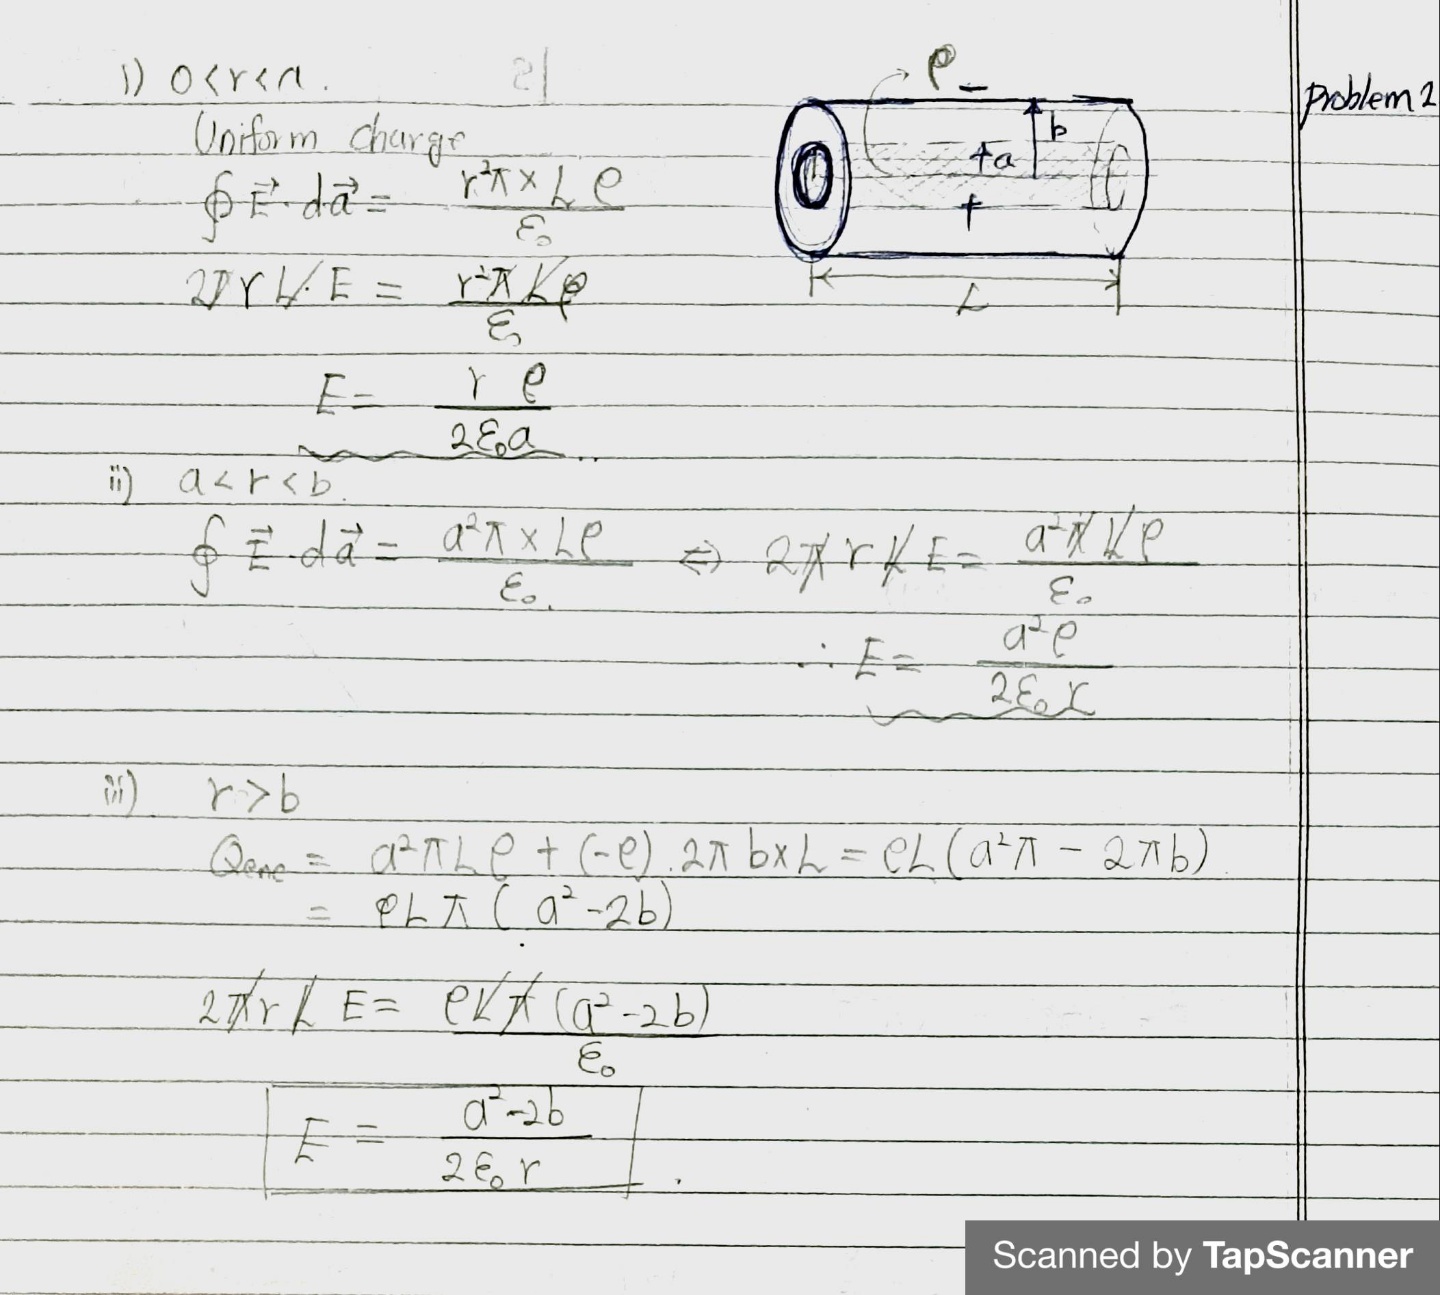 Problem 2
i) 0 < r < a.
Uniform charge
∮ E⃗ · da⃗ = r²π × L ρ / ε₀
2πr L · E = r²π L ρ / ε₀
E = r ρ / 2ε₀a
ρ
−
b
+a
+
L
ii) a < r < b.
∮ E⃗ · da⃗ = a²π × Lρ / ε₀. ⇔ 2π r L E = a²π L ρ / ε₀
∴ E = a²ρ / 2ε₀ r
iii) r > b
Qenc = a²πLρ + (−ρ) · 2πb × L = ρL(a²π − 2πb)
= ρLπ (a² − 2b)
2πr L E = ρLπ (a² − 2b) / ε₀
E = a² − 2b / 2ε₀ r .
Scanned by TapScanner